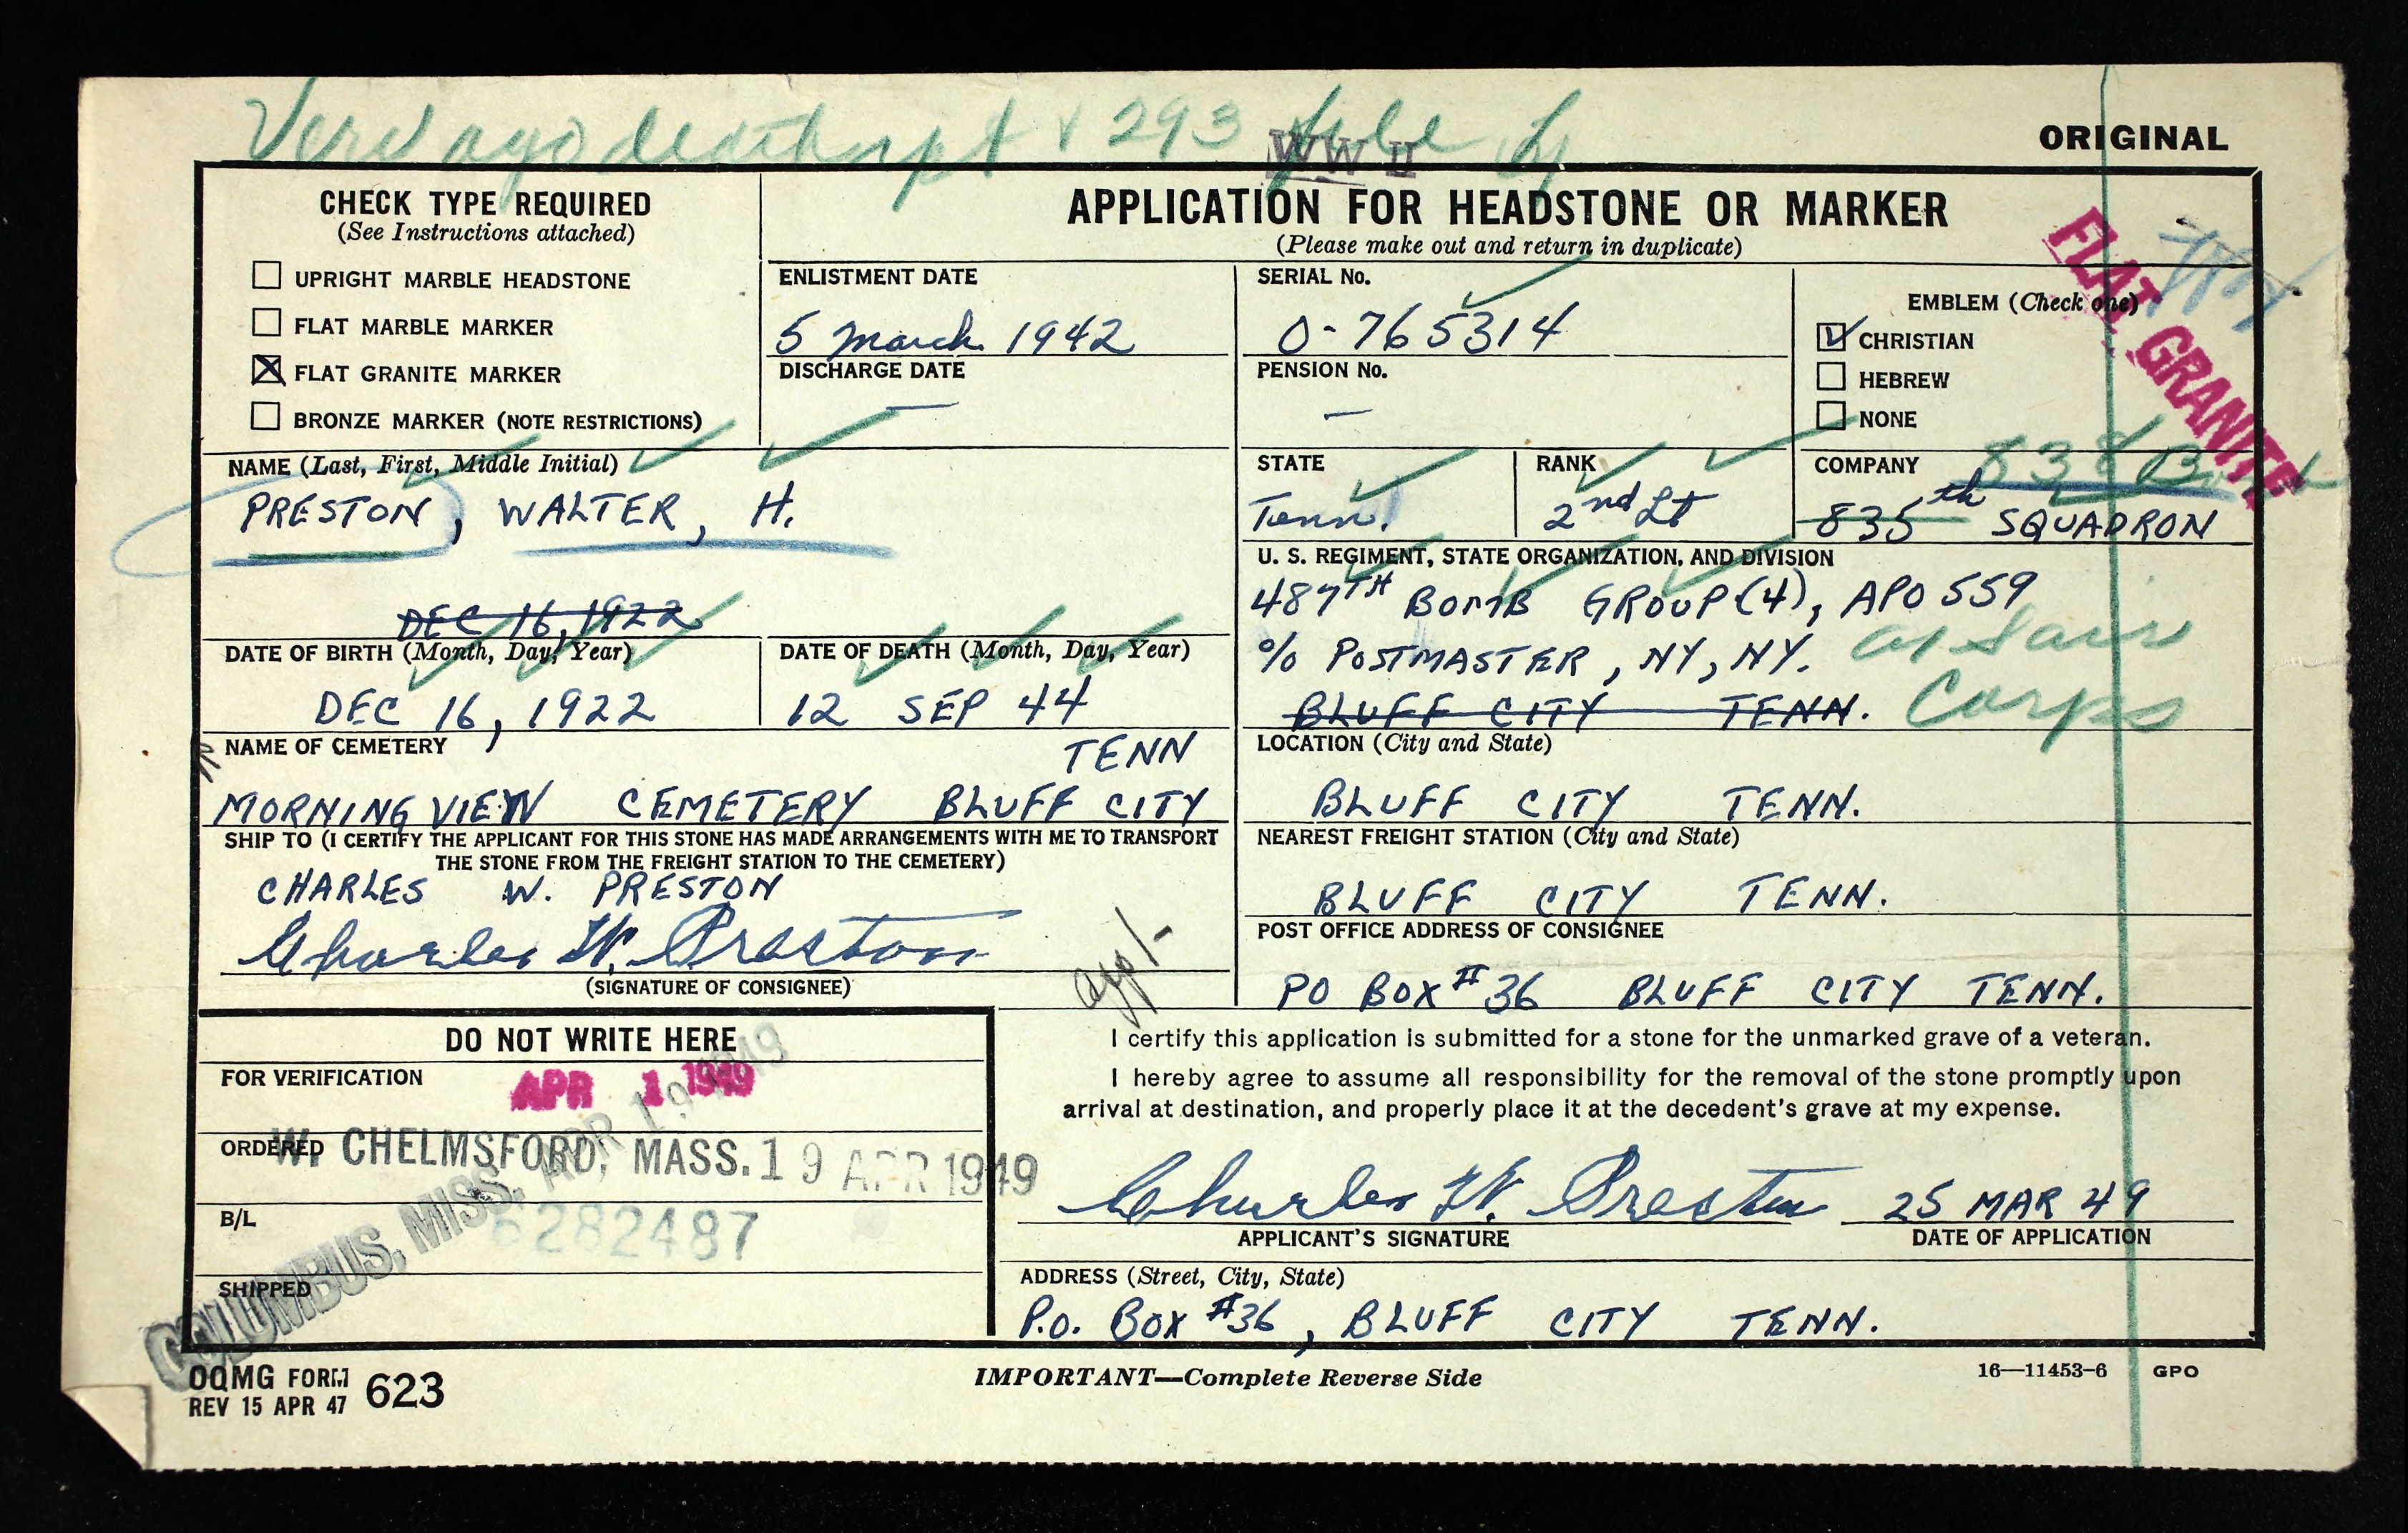 Verd ago death rpt & 293 file
WW II
ORIGINAL
CHECK TYPE REQUIRED
(See Instructions attached)
UPRIGHT MARBLE HEADSTONE
FLAT MARBLE MARKER
FLAT GRANITE MARKER
BRONZE MARKER (NOTE RESTRICTIONS)
APPLICATION FOR HEADSTONE OR MARKER
(Please make out and return in duplicate)
ENLISTMENT DATE
5 March 1942
DISCHARGE DATE
—
SERIAL No.
O-765314
PENSION No.
—
EMBLEM (Check one)
CHRISTIAN
HEBREW
NONE
FLAT GRANITE
NAME (Last, First, Middle Initial)
PRESTON, WALTER, H.
STATE
Tenn.
RANK
2nd Lt
COMPANY
838 B
835th SQUADRON
DEC 16, 1922
DATE OF BIRTH (Month, Day, Year)
DEC 16, 1922
DATE OF DEATH (Month, Day, Year)
12 SEP 44
U. S. REGIMENT, STATE ORGANIZATION, AND DIVISION
487TH BOMB GROUP (4), APO 559
% POSTMASTER, NY, NY.
BLUFF CITY TENN.
Corps
NAME OF CEMETERY
TENN
MORNING VIEW CEMETERY BLUFF CITY
LOCATION (City and State)
BLUFF CITY TENN.
SHIP TO (I CERTIFY THE APPLICANT FOR THIS STONE HAS MADE ARRANGEMENTS WITH ME TO TRANSPORT
THE STONE FROM THE FREIGHT STATION TO THE CEMETERY)
CHARLES W. PRESTON
Charles W. Preston
(SIGNATURE OF CONSIGNEE)
NEAREST FREIGHT STATION (City and State)
BLUFF CITY TENN.
POST OFFICE ADDRESS OF CONSIGNEE
PO BOX #36 BLUFF CITY TENN.
DO NOT WRITE HERE
FOR VERIFICATION
APR 1 1949
ORDERED
W. CHELMSFORD, MASS. 19 APR 1949
COLUMBUS, MISS. APR 19 1949
B/L
6282487
SHIPPED
I certify this application is submitted for a stone for the unmarked grave of a veteran.
I hereby agree to assume all responsibility for the removal of the stone promptly upon
arrival at destination, and properly place it at the decedent's grave at my expense.
Charles W. Preston 25 MAR 49
APPLICANT'S SIGNATURE
DATE OF APPLICATION
ADDRESS (Street, City, State)
P.O. BOX #36, BLUFF CITY TENN.
OQMG FORM
REV 15 APR 47 623
IMPORTANT—Complete Reverse Side
16—11453-6 GPO